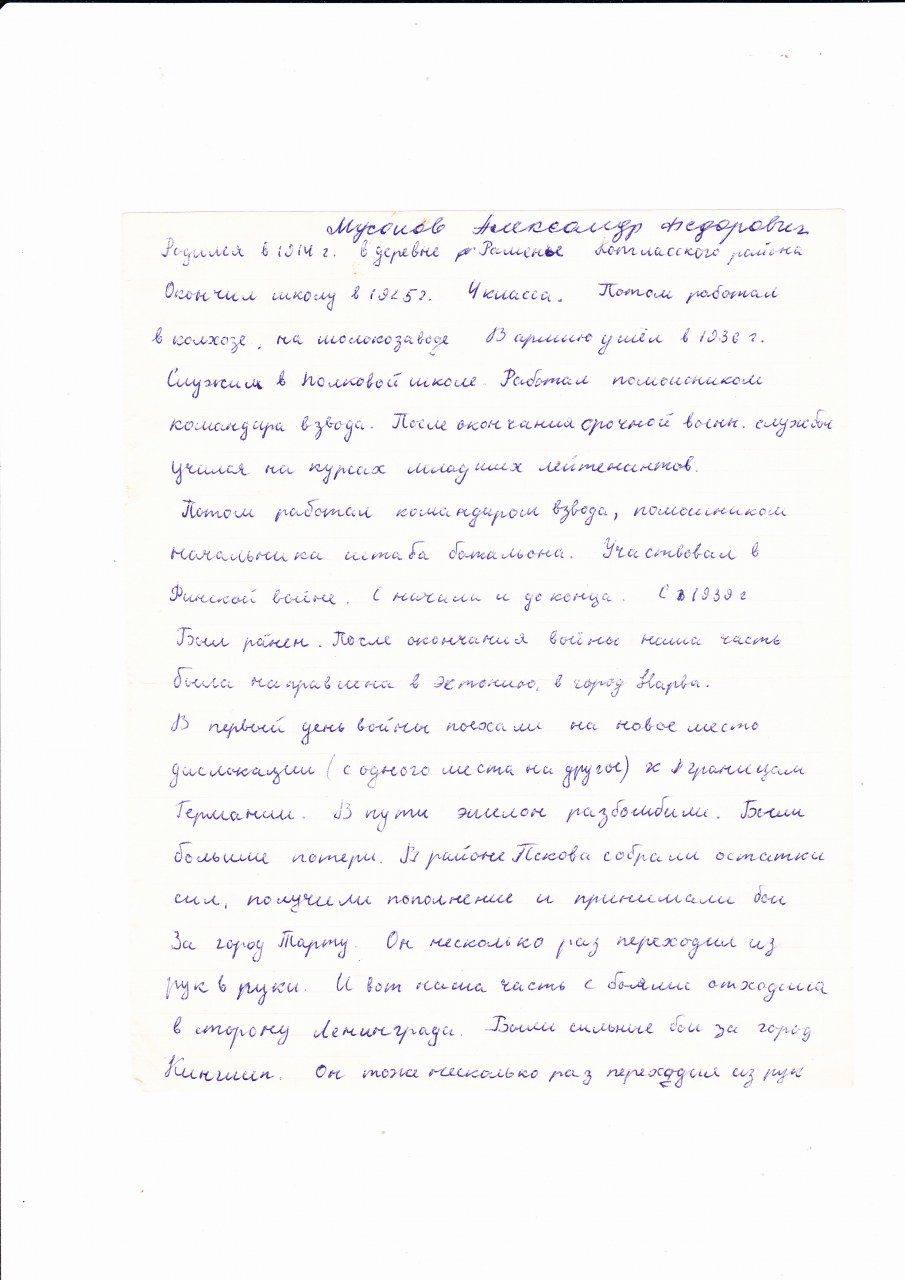 Мусонов Александр Федорович
Родился в 1914 г. в деревне Раменье Котласского района
Окончил школу в 1925г. 4 класса. Потом работал
в колхозе, на молокозаводе В армию ушёл в 1936 г.
Служил в полковой школе. Работал помошником
командира взвода. После окончания срочной воен. службы
учился на курсах младших лейтенантов.
Потом работал командиром взвода, помошником
начальника штаба батальона. Участвовал в
Финской войне. С начала и до конца. С 1939 г
Был ранен. После окончания войны наша часть
была направлена в Эстонию, в город Нарва.
В первый день войны поехали на новое место
дислокации (с одного места на другое) к границам
Германии. В пути эшелон разбомбили. Были
большие потери. В районе Пскова собрали остатки
сил, получили пополнение и принимали бои
За город Тарту. Он несколько раз переходил из
рук в руки. И вот наша часть с боями отходила
в сторону Ленинграда. Были сильные бои за город
Кингисеп. Он тоже несколько раз переходил из рук